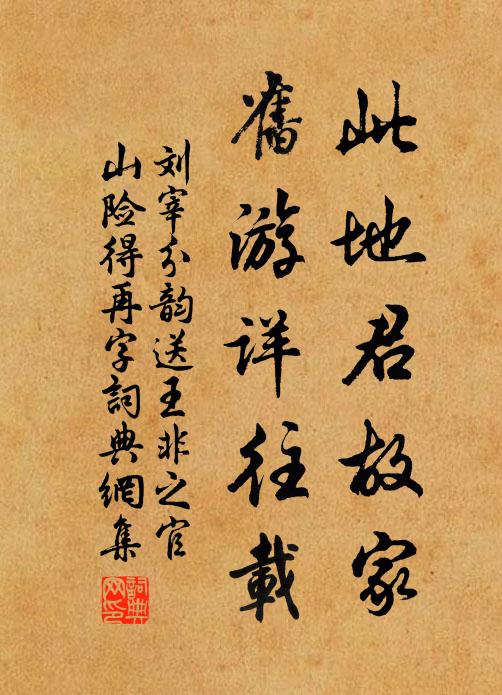 此地君故家
舊游详往載
刘宰分韵送王非之官
山险得再字詞典網集
詞典网印